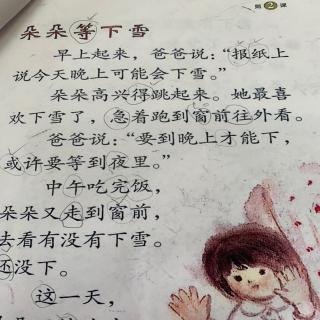 第2课
朵朵等下雪
早上起来，爸爸说：“报纸上
说今天晚上可能会下雪。”
朵朵高兴得跳起来。她最喜
欢下雪了，急着跑到窗前往外看。
爸爸说：“要到晚上才能下，
或许要等到夜里。”
中午吃完饭，
朵朵又走到窗前，
去看有没有下雪。
还没下。
这一天，